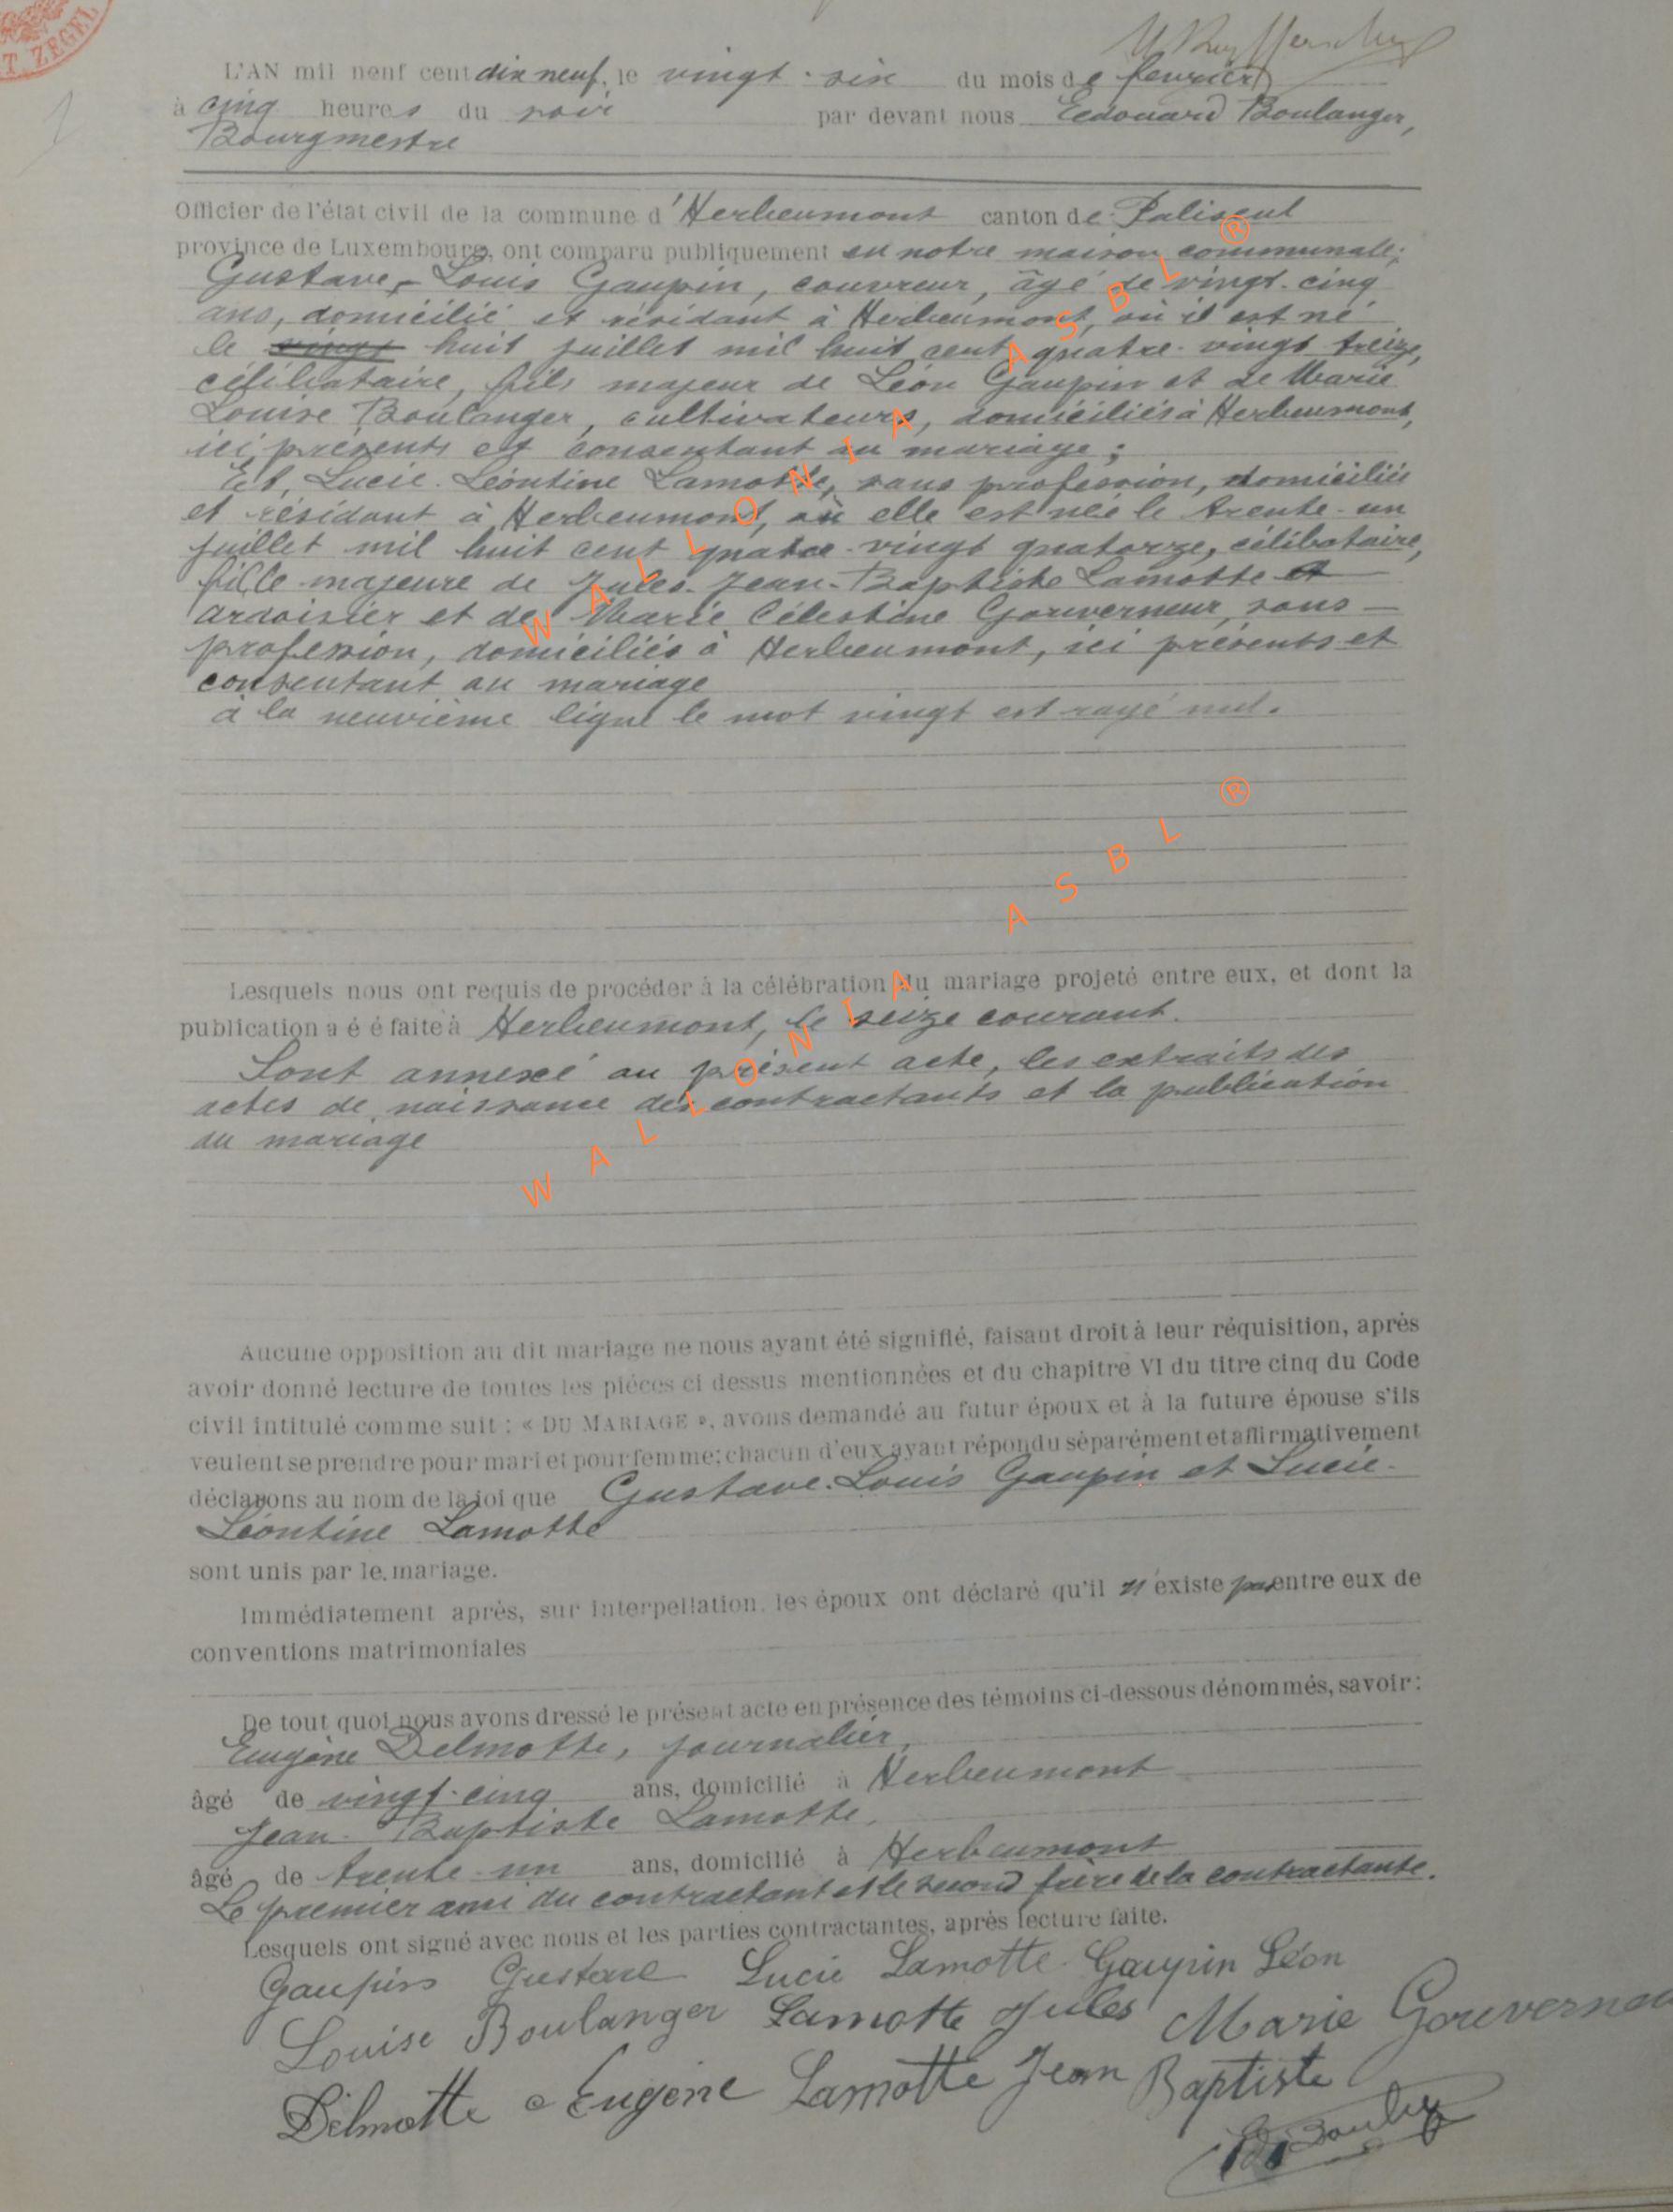 T ZEGEL
L'AN mil neuf cent dix neuf, le vingt-six du mois de février
à cinq heures du soir par devant nous Edouard Boulanger,
Bourgmestre
Officier de l'état civil de la commune d'Herbeumont canton de Paliseul
province de Luxembourg, ont comparu publiquement en notre maison communale;
Gustave-Louis Gaupin, couvreur, âgé de vingt-cinq
ans, domicilié et résidant à Herbeumont, où il est né
le vingt huit juillet mil huit cent quatre-vingt treize,
célibataire, fils majeur de Léon Gaupin et de Marie
Louise Boulanger, cultivateurs, domiciliés à Herbeumont,
ici présents et consentant au mariage;
Et, Lucie-Léontine Lamotte, sans profession, domiciliée
et résidant à Herbeumont, où elle est née le trente-un
juillet mil huit cent quatre-vingt quatorze, célibataire,
fille majeure de Jules-Jean-Baptiste Lamotte et
ardoisier et de Marie Célestine Gouverneur, sans
profession, domiciliés à Herbeumont, ici présents et
consentant au mariage
à la neuvième ligne le mot vingt est rayé nul.
Lesquels nous ont requis de procéder à la célébration du mariage projeté entre eux, et dont la
publication a é é faite à Herbeumont, le seize courant.
Sont annexé au présent acte, les extraits des
actes de naissance des contractants et la publication
du mariage
Aucune opposition au dit mariage ne nous ayant été signifié, faisant droit à leur réquisition, après
avoir donné lecture de toutes les piéces ci dessus mentionnées et du chapitre VI du titre cinq du Code
civil intitulé comme suit : « DU MARIAGE », avons demandé au futur époux et à la future épouse s'ils
veulent se prendre pour mari et pour femme; chacun d'eux ayant répondu séparément et affirmativement
déclarons au nom de la loi que Gustave-Louis Gaupin et Lucie-
Léontine Lamotte
sont unis par le mariage.
Immédiatement après, sur interpellation, les époux ont déclaré qu'il n'existe pas entre eux de
conventions matrimoniales
De tout quoi nous avons dressé le présent acte en présence des témoins ci-dessous dénommés, savoir :
Eugène Delmotte, journalier,
âgé de vingt-cinq ans, domicilié à Herbeumont
Jean-Baptiste Lamotte,
âgé de trente-un ans, domicilié à Herbeumont
Le premier ami du contractant et le second frère de la contractante.
Lesquels ont signé avec nous et les parties contractantes, après lecture faite.
Gaupin Gustave Lucie Lamotte Gaupin Léon
Louise Boulanger Lamotte Jules Marie Gouverneu
Delmotte Eugène Lamotte Jean Baptiste
WALLONIA ASBL ®
WALLONIA ASBL ®